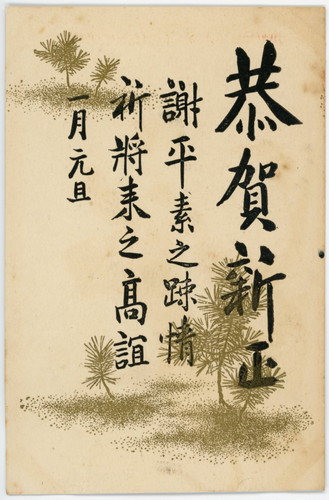 恭賀新正
謝平素之疎情
祈將来之高誼
一月元旦